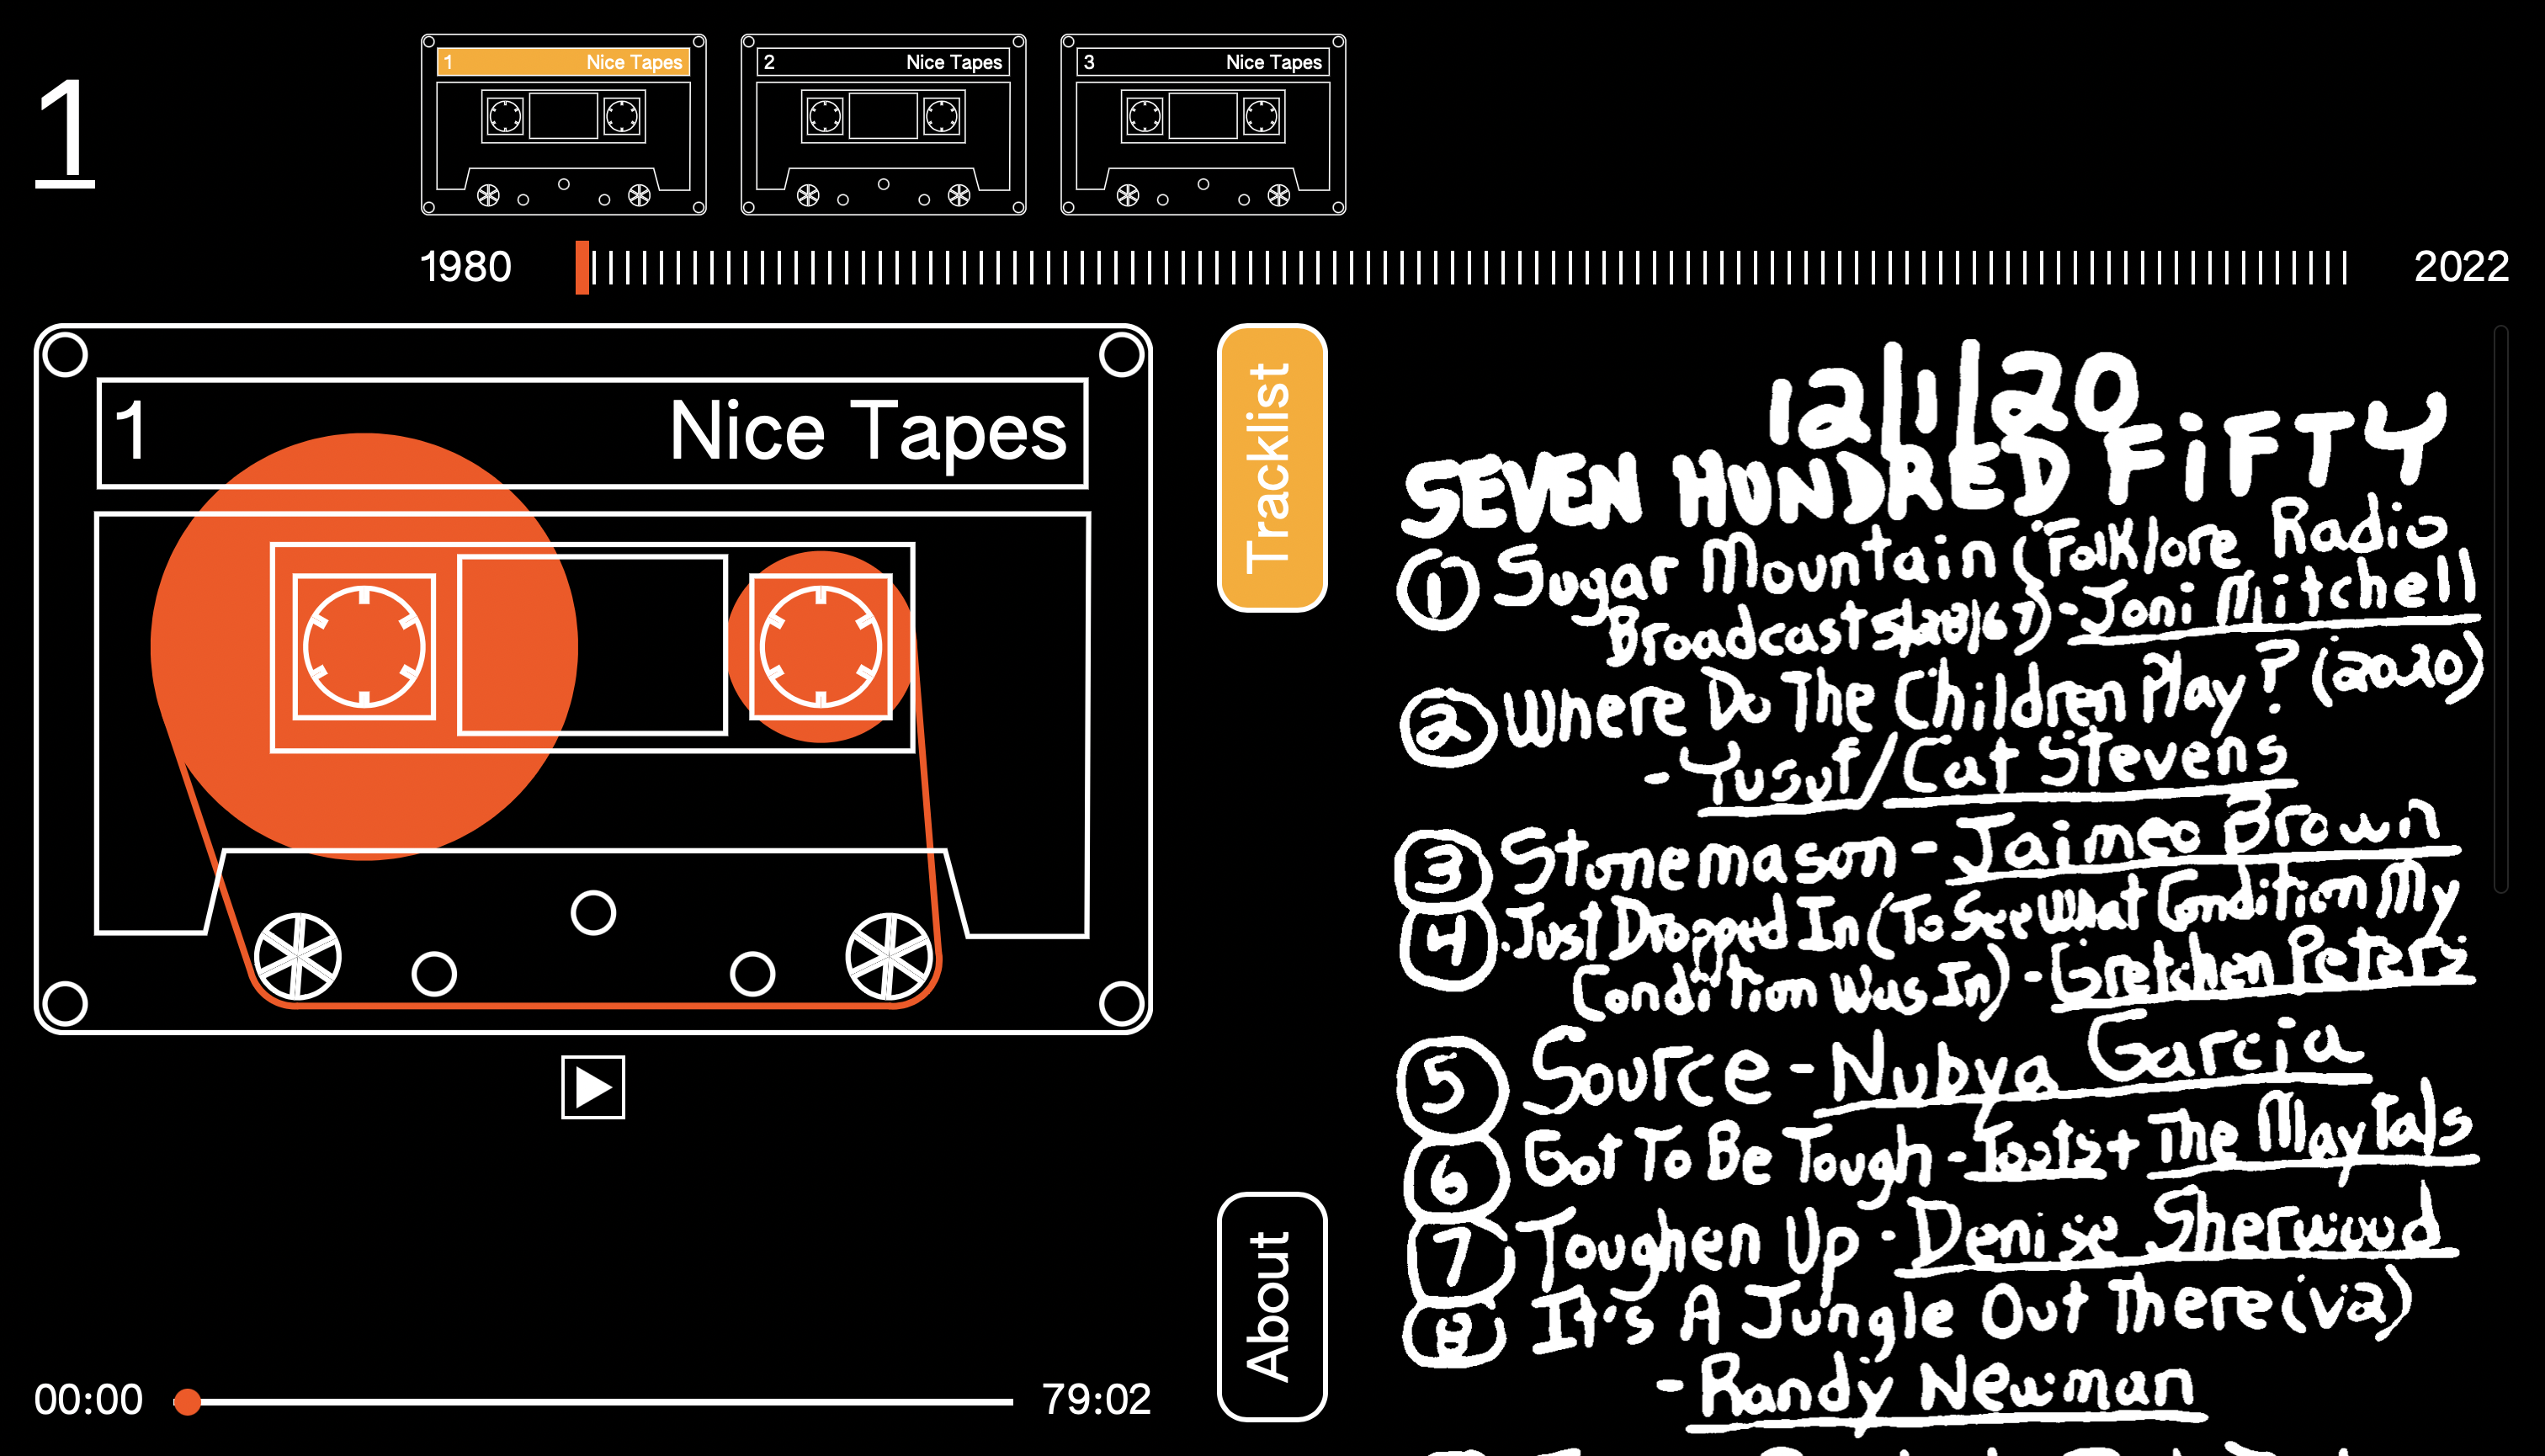 1
1 Nice Tapes
2 Nice Tapes
3 Nice Tapes
1980
2022
1 Nice Tapes
Tracklist
12/1/20
SEVEN HUNDRED FIFTY
1 Sugar Mountain (Folklore Radio
Broadcast 5/28/67) - Joni Mitchell
2 Where Do The Children Play? (2020)
- Yusuf/Cat Stevens
3 Stonemason - Jaimeo Brown
4 Just Dropped In (To See What Condition My
Condition Was In) - Gretchen Peters
5 Source - Nubya Garcia
6 Got To Be Tough - Toots + The Maytals
7 Toughen Up - Denise Sherwood
8 It's A Jungle Out There (V2)
- Randy Newman
About
00:00
79:02